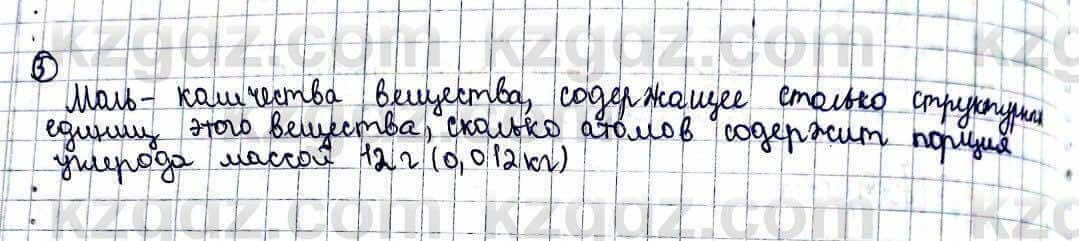 kzgdz.com kzgdz.com kzgdz.com
5
Моль - количества вещества, содержащее столько структурных
единиц этого вещества, сколько атомов содержит порция
углерода массой 12 г (0,012 кг)
kzgdz.com kzgdz.com kzgdz.com